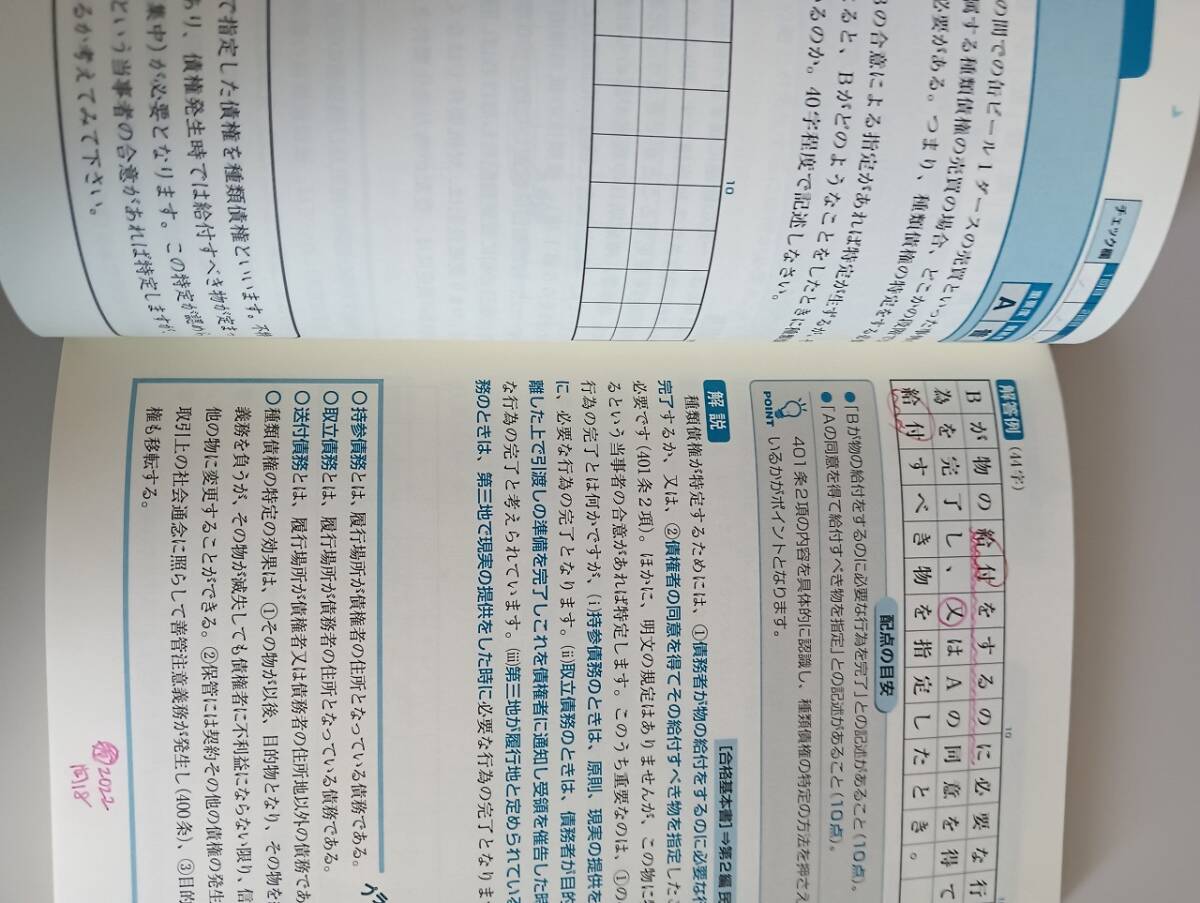 チェック欄
A
の間での缶ビール1ダースの売買といった
属する種類債権の売買の場合、どこかの段階で
必要がある。つまり、種類債権の特定をする
Bの合意による指定があれば特定が生ずるが、
ると、Bがどのようなことをしたときに
いるのか。40字程度で記述しなさい。
10
で指定した債権を種類債権といいます。
あり、債権発生時では給付すべき物が定ま
集中)が必要となります。この特定が認め
という当事者の合意があれば特定しますが、
るか考えてみて下さい。
解答例 (44字)
10
Bが物の給付をするのに必要な行
為を完了し、又はAの同意を得て
給付すべき物を指定したとき。
配点の目安
●「Bが物の給付をするのに必要な行為を完了」との記述があること(10点)。
●「Aの同意を得て給付すべき物を指定」との記述があること(10点)。
POINT
401条2項の内容を具体的に認識し、種類債権の特定の方法を押さえ
いるかがポイントとなります。
解説
[合格基本書]⇒第2編 民
種類債権が特定するためには、①債務者が物の給付をするのに必要な行
完了するか、又は、②債権者の同意を得てその給付すべき物を指定したこ
必要です(401条2項)。ほかに、明文の規定はありませんが、この物に
るという当事者の合意があれば特定します。このうち重要なのは、①の
行為の完了とは何かですが、(ⅰ)持参債務のときは、原則、現実の提供を
に、必要な行為の完了となります。(ⅱ)取立債務のときは、債務者が目的
離した上で引渡しの準備を完了しこれを債権者に通知し受領を催告した時
な行為の完了と考えられています。(ⅲ)第三地が履行地と定められている
務のときは、第三地で現実の提供をした時に必要な行為の完了となりま
○持参債務とは、履行場所が債権者の住所となっている債務である。
○取立債務とは、履行場所が債務者の住所となっている債務である。
○送付債務とは、履行場所が債権者又は債務者の住所地以外の債務であ
○種類債権の特定の効果は、①その物が以後、目的物となり、その物を
義務を負うが、その物が滅失しても債権者に不利益にならない限り、信
他の物に変更することができる。②保管には契約その他の債権の発生
取引上の社会通念に照らして善管注意義務が発生し(400条)、③目的
権も移転する。
2022
問18